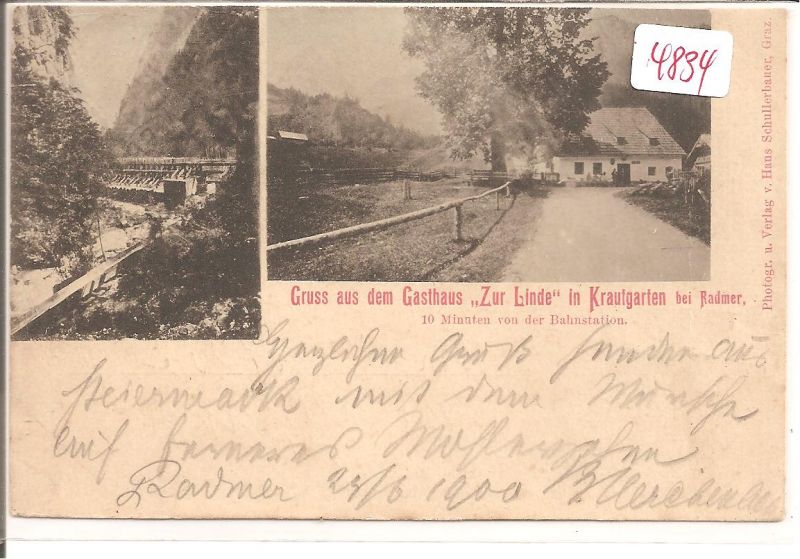 4834
Photogr. u. Verlag v. Hans Schullerbauer, Graz.
Gruss aus dem Gasthaus „Zur Linde“ in Krautgarten bei Radmer,
10 Minuten von der Bahnstation.
Herzlichen Gruß sendet aus
Steiermark mit dem Wunsche
auf ferneres Wohlergehen
Radmer 1900